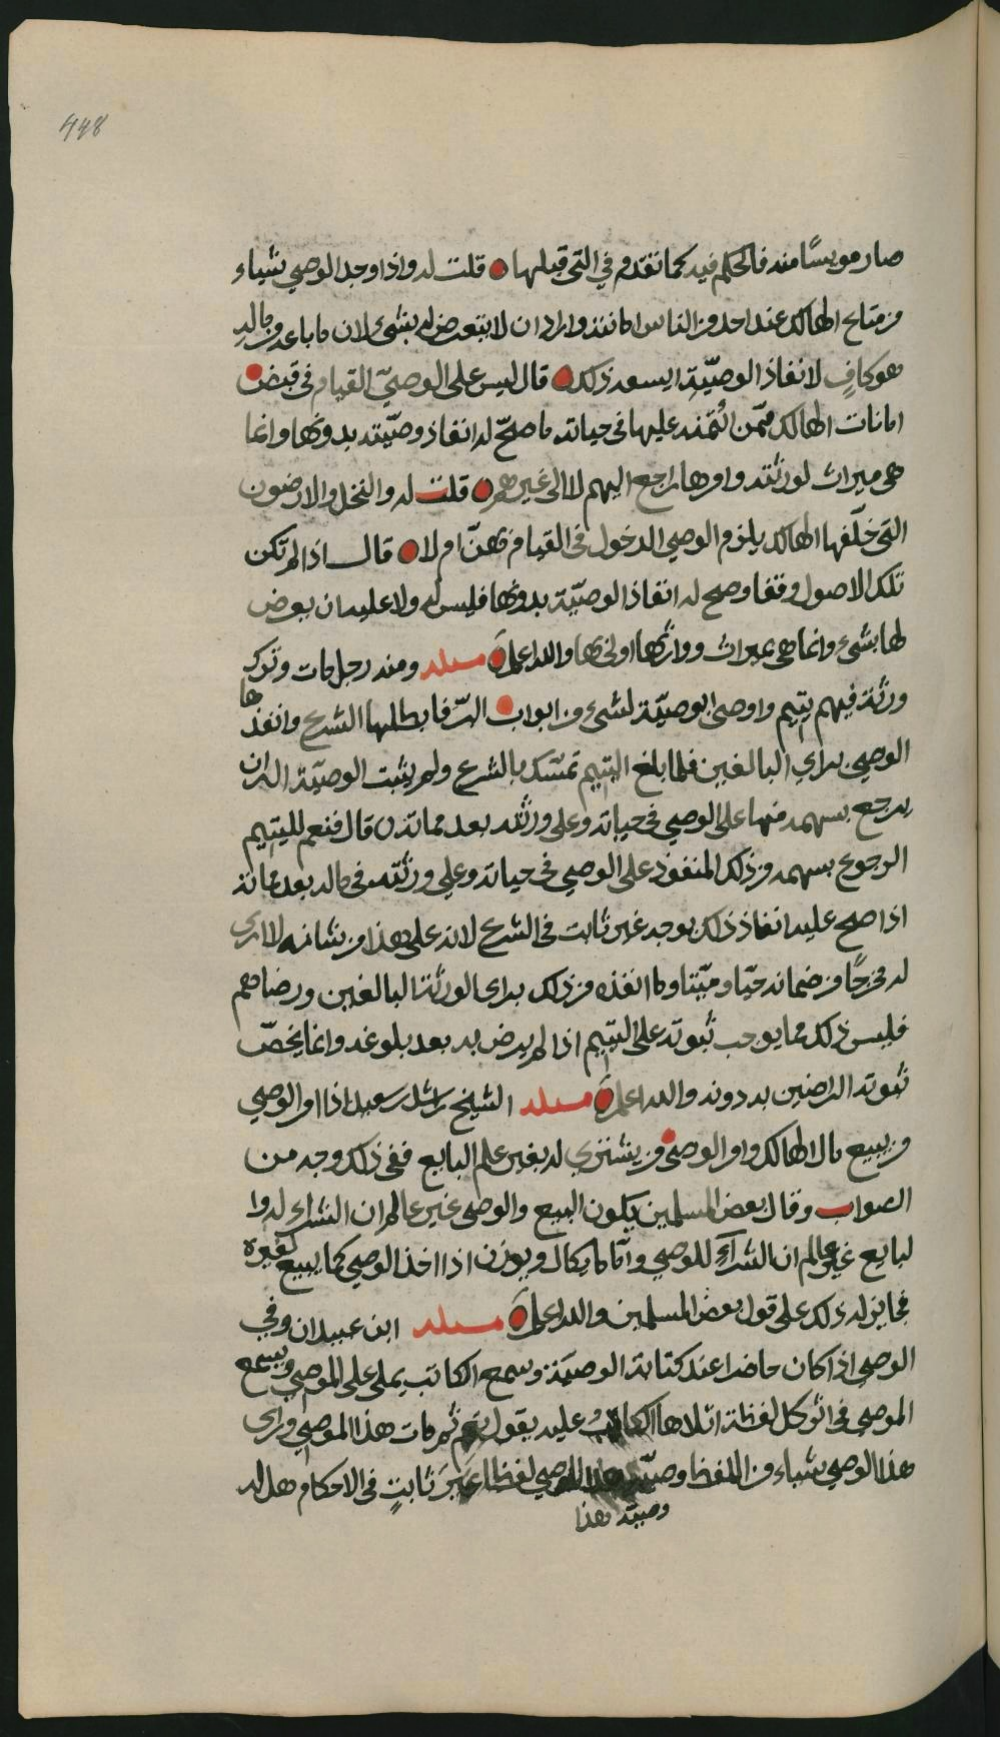 448
صار مويسًا منه فالحكم فيه كما تقدم في التي قبلها قلت له واذا وجد الوصي شياء
من متاع الهالك عند احد من الناس امانة واراد ان لا يتعرض له بشيء لان ما باعه من ماله
هو كافٍ لانفاذ الوصيّة ايسعه ذلك قال ليس على الوصيّ القيام في قبض
امانات الهالك ممّن ائتمنه عليها في حياته ما صحّ له انفاذ وصيّته بدونها وانما
هي ميراث لورثته وامرها راجع اليهم لا الى غيرهم قلت له والنخل والارضون
التي خلّفها الهالك يلزم الوصي الدخول في القيام بهنّ ام لا قال اذا لم تكن
تلك الاصول وقفا وصح له انفاذ الوصيّة بدونها فليس له ولا عليه ان يعرض
لها بشيء وانما هي ميراث ووارثها اولى بها والله اعلم مسئله ومنه رجل مات وترك
ورثة فيهم يتيم واوصى بوصيّة لشيء من ابواب البرّ فابطلها الشرع وانفذها
الوصي براي البالغين فلما بلغ اليتيم تمسّك بالشرع ولم يثبت الوصيّة اله ان
يرجع بسهمه منها على الوصي في حياته وعلى ورثته بعد مماته قال فنعم لليتيم
الرجوع بسهمه من ذلك المنفوذ على الوصي في حياته وعلى ورثته في ماله بعد مماته
اذا صح عليه انفاذ ذلك بوجه غير ثابت في الشرع لانه على هذا من شانه لا ارى
له مخرجًا من ضمانه حيّا وميّتا وما انفذه من ذلك براى الورثة البالغين ورضاهم
فليس ذلك مما يوجب ثبوته على اليتيم اذا لم يرض به بعد بلوغه وانما يخصّ
ثبوته الراضين به دونه والله اعلم مسئله الشيخ راشد سعيد اذا امر الوصي
من يبيع مال الهالك وامر الوصي من يشتري له بغير علم البايع ففي ذلك وجه من
الصواب وقال بعض المسلمين يكون البيع والوصي غير عالم ان الشراء له وا
لبايع غير عالم ان الشرآء للوصي وامّا ما يكال ويوزن اذا اخذ الوصي كما يبيع لغيره
فجايز له ذلك على قول بعض المسلمين والله اعلم مسئله ابن عبيدان وفي
الوصي اذا كان حاضرا عند كتابة الوصيّة وسمع الكاتب يملي على الموصي ويسمع
الموصي في اثر كل لفظة اتلاها الكاتب عليه يقول نعم ثم مات هذا الموصي وراى
هذا الوصي شياء من اللفظ وصيّة هذا الموصي لفظا غيرَ ثابتٍ في الاحكام هل له
وصية هذا